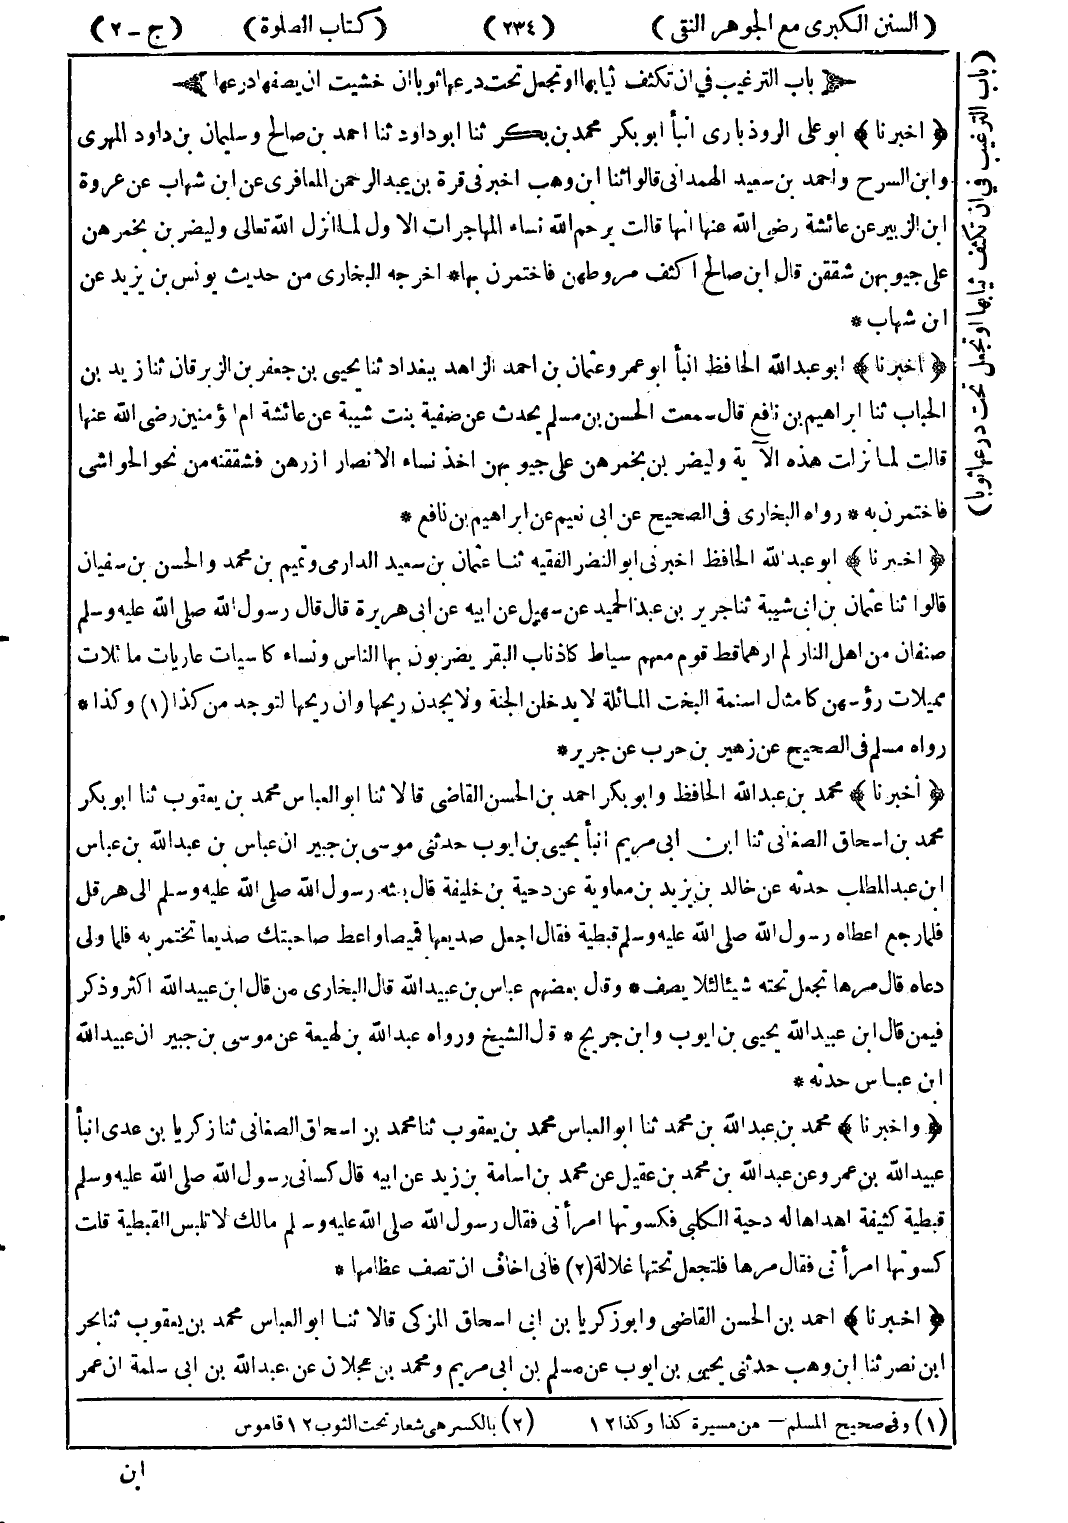 ( السنن الكبرى مع الجوهر النقى ) ( ٢٣٤ ) ( كتاب الصلوة ) ( ج - ٢ )
باب الترغيب فى ان تكثف ثيابها او تجعل تحت درعها ثوبا ان خشيت ان يصفها درعها
﴿ اخبرنا ﴾ ابو على الروذبارى انبأ ابو بكر محمد بن بكر ثنا ابو داود ثنا احمد بن صالح وسليمان بن داود المهرى
وابن السرح واحمد بن سعيد الهمدانى قالوا ثنا ابن وهب اخبرنى قرة بن عبد الرحمن المعافرى عن ابن شهاب عن عروة
ابن الزبير عن عائشة رضى الله عنها انها قالت يرحم الله نساء المهاجرات الاول لما انزل الله تعالى وليضربن بخمرهن
على جيوبهن شققن قال ابن صالح اكثف مروطهن فاختمرن بها * اخرجه البخارى من حديث يونس بن يزيد عن
ابن شهاب *
﴿ اخبرنا ﴾ ابو عبد الله الحافظ انبأ ابو عمرو عثمان بن احمد الزاهد ببغداد ثنا يحيى بن جعفر بن الزبرقان ثنا زيد بن
الحباب ثنا ابراهيم بن نافع قال سمعت الحسن بن مسلم يحدث عن صفية بنت شيبة عن عائشة ام المؤمنين رضى الله عنها
قالت لما نزلت هذه الآية وليضربن بخمرهن على جيوبهن اخذ نساء الانصار ازرهن فشققنه من نحو الحواشى
فاختمرن به * رواه البخارى فى الصحيح عن ابى نعيم عن ابراهيم بن نافع *
﴿ اخبرنا ﴾ ابو عبد الله الحافظ اخبرنى ابو النضر الفقيه ثنا عثمان بن سعيد الدارمى وتميم بن محمد والحسن بن سفيان
قالوا ثنا عثمان بن ابى شيبة ثنا جرير بن عبد الحميد عن سهيل عن ابيه عن ابى هريرة قال قال رسول الله صلى الله عليه وسلم
صنفان من اهل النار لم ارهما قط قوم معهم سياط كاذناب البقر يضربون بها الناس ونساء كاسيات عاريات مائلات
مميلات رؤسهن كامثال اسنمة البخت المائلة لا يدخلن الجنة ولا يجدن ريحها وان ريحها لتوجد من كذا (١) وكذا *
رواه مسلم فى الصحيح عن زهير بن حرب عن جرير *
﴿ أخبرنا ﴾ محمد بن عبد الله الحافظ وابو بكر احمد بن الحسن القاضى قالا ثنا ابو العباس محمد بن يعقوب ثنا ابو بكر
محمد بن اسحاق الصغانى ثنا ابن ابى مريم انبأ يحيى بن ايوب حدثنى موسى بن جبير ان عباس بن عبد الله بن عباس
ابن عبد المطلب حدثه عن خالد بن يزيد بن معاوية عن دحية بن خليفة قال بعثه رسول الله صلى الله عليه وسلم الى هرقل
فلما رجع اعطاه رسول الله صلى الله عليه وسلم قبطية فقال اجعل صديعها قميصا واعط صاحبتك صديعا تختمر به فلما ولى
دعاه قال مرها تجعل تحته شيئا لئلا يصف * وقال بعضهم عباس بن عبيد الله قال البخارى من قال ابن عبيد الله اكثر وذكر
فيمن قال ابن عبيد الله يحيى بن ايوب وابن جريج * قال الشيخ ورواه عبد الله بن لهيعة عن موسى بن جبير ان عبيد الله
ابن عباس حدثه *
﴿ واخبرنا ﴾ محمد بن عبد الله بن محمد ثنا ابو العباس محمد بن يعقوب ثنا محمد بن اسحاق الصغانى ثنا زكريا بن عدى انبأ
عبيد الله بن عمرو عن عبد الله بن محمد بن عقيل عن محمد بن اسامة بن زيد عن ابيه قال كسانى رسول الله صلى الله عليه وسلم
قبطية كثيفة اهداها له دحية الكلبى فكسوتها امرأتى فقال رسول الله صلى الله عليه وسلم مالك لا تلبس القبطية قلت
كسوتها امرأتى فقال مرها فلتجعل تحتها غلالة (٢) فانى اخاف ان تصف عظامها *
﴿ اخبرنا ﴾ احمد بن الحسن القاضى وابو زكريا بن ابى اسحاق المزكى قالا ثنا ابو العباس محمد بن يعقوب ثنا بحر
ابن نصر ثنا ابن وهب حدثنى يحيى بن ايوب عن مسلم بن ابى مريم ومحمد بن عجلان عن عبد الله بن ابى سلمة ان عمر
(١) وفى صحيح المسلم – من مسيرة كذا وكذا ١٢ (٢) بالكسر هى شعار تحت الثوب ١٢ قاموس
ابن
( باب الترغيب فى ان تكثف ثيابها او تجعل تحت درعها ثوبا )